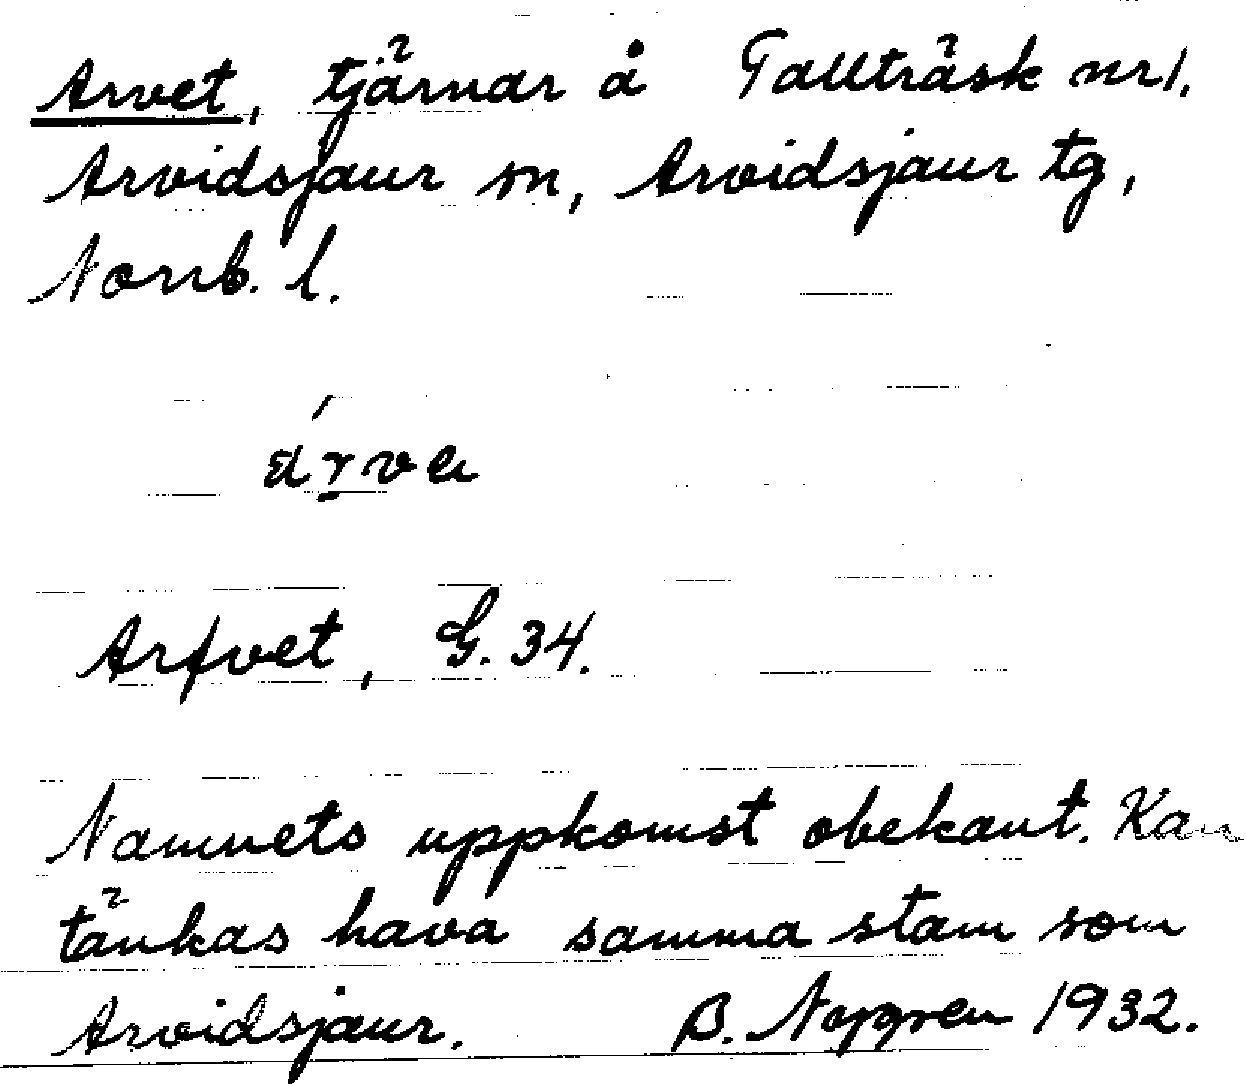 Arvet, tjärnar å Tallträsk nr 1.
Arvidsjaur sn, Arvidsjaur tg,
Norrb. l.
árva
Arfvet, G. 34.
Namnets uppkomst obekant. Kan
tänkas hava samma stam som
Arvidsjaur. B. Norgren 1932.